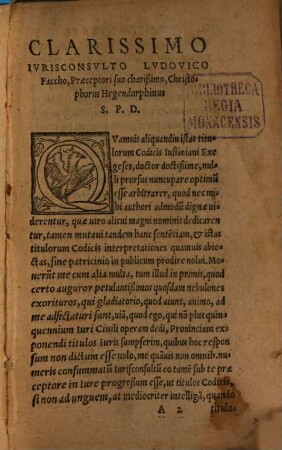 CLARISSIMO
IVRISCONSVLTO LVDOVICO
Faccho, Præceptori suo charissimo, Christo-
phorus Hegendorphinus
S. P. D.
BIBLIOTHECA
REGIA
MONACENSIS
QVamuis aliquandiu istas titu
lorum Codicis Iustiniani Exe
geses, doctor doctissime, nul-
li prorsus nuncupare optimũ
esse arbitrarer, quod nec mi
hi authori admodũ dignæ ui
derentur, quæ uiro alicui magni nominis dedicaren
tur, tamen mutaui tandem hanc sentẽtiam, & istas
titulorum Codicis interpretationes quamuis abie-
ctas, sine patricinio in publicum prodire nolui. Mo-
uerũt me cum alia multa, tum illud in primis, quod
certo auguror petulantissimos quosdam nebulones
exorituros, qui gladiatorio, quod aiunt, animo, ad
me adfectaturi sunt, uiã, quod ego, qui nõ plus quin-
quennium Iuri Ciuili operam dedi, Prouinciam ex-
ponendi titulos Iuris sumpserim, quibus hoc respon
sum non dictum esse uolo, me quãuis non omnib. nu-
meris consummatũ Iurisconsultũ eo tamẽ sub te præ
ceptore in Iure progressum esse, ut titulos Codicis,
si non ad unguem, at mediocriter intelligã, quando
A 2 titulo-